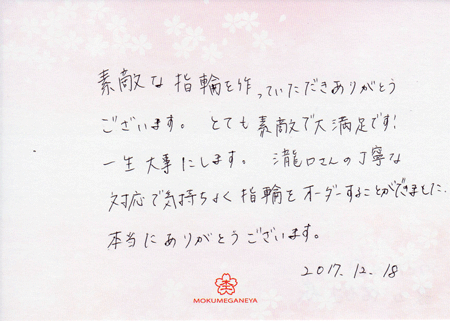 素敵な指輪を作っていただきありがとう
ございます。 とても素敵で大満足です!
一生大事にします。 瀧口さんの丁寧な
対応で気持ちよく指輪をオーダーすることができました.
本当にありがとうございます。
2017.12.18
MOKUMEGANEYA